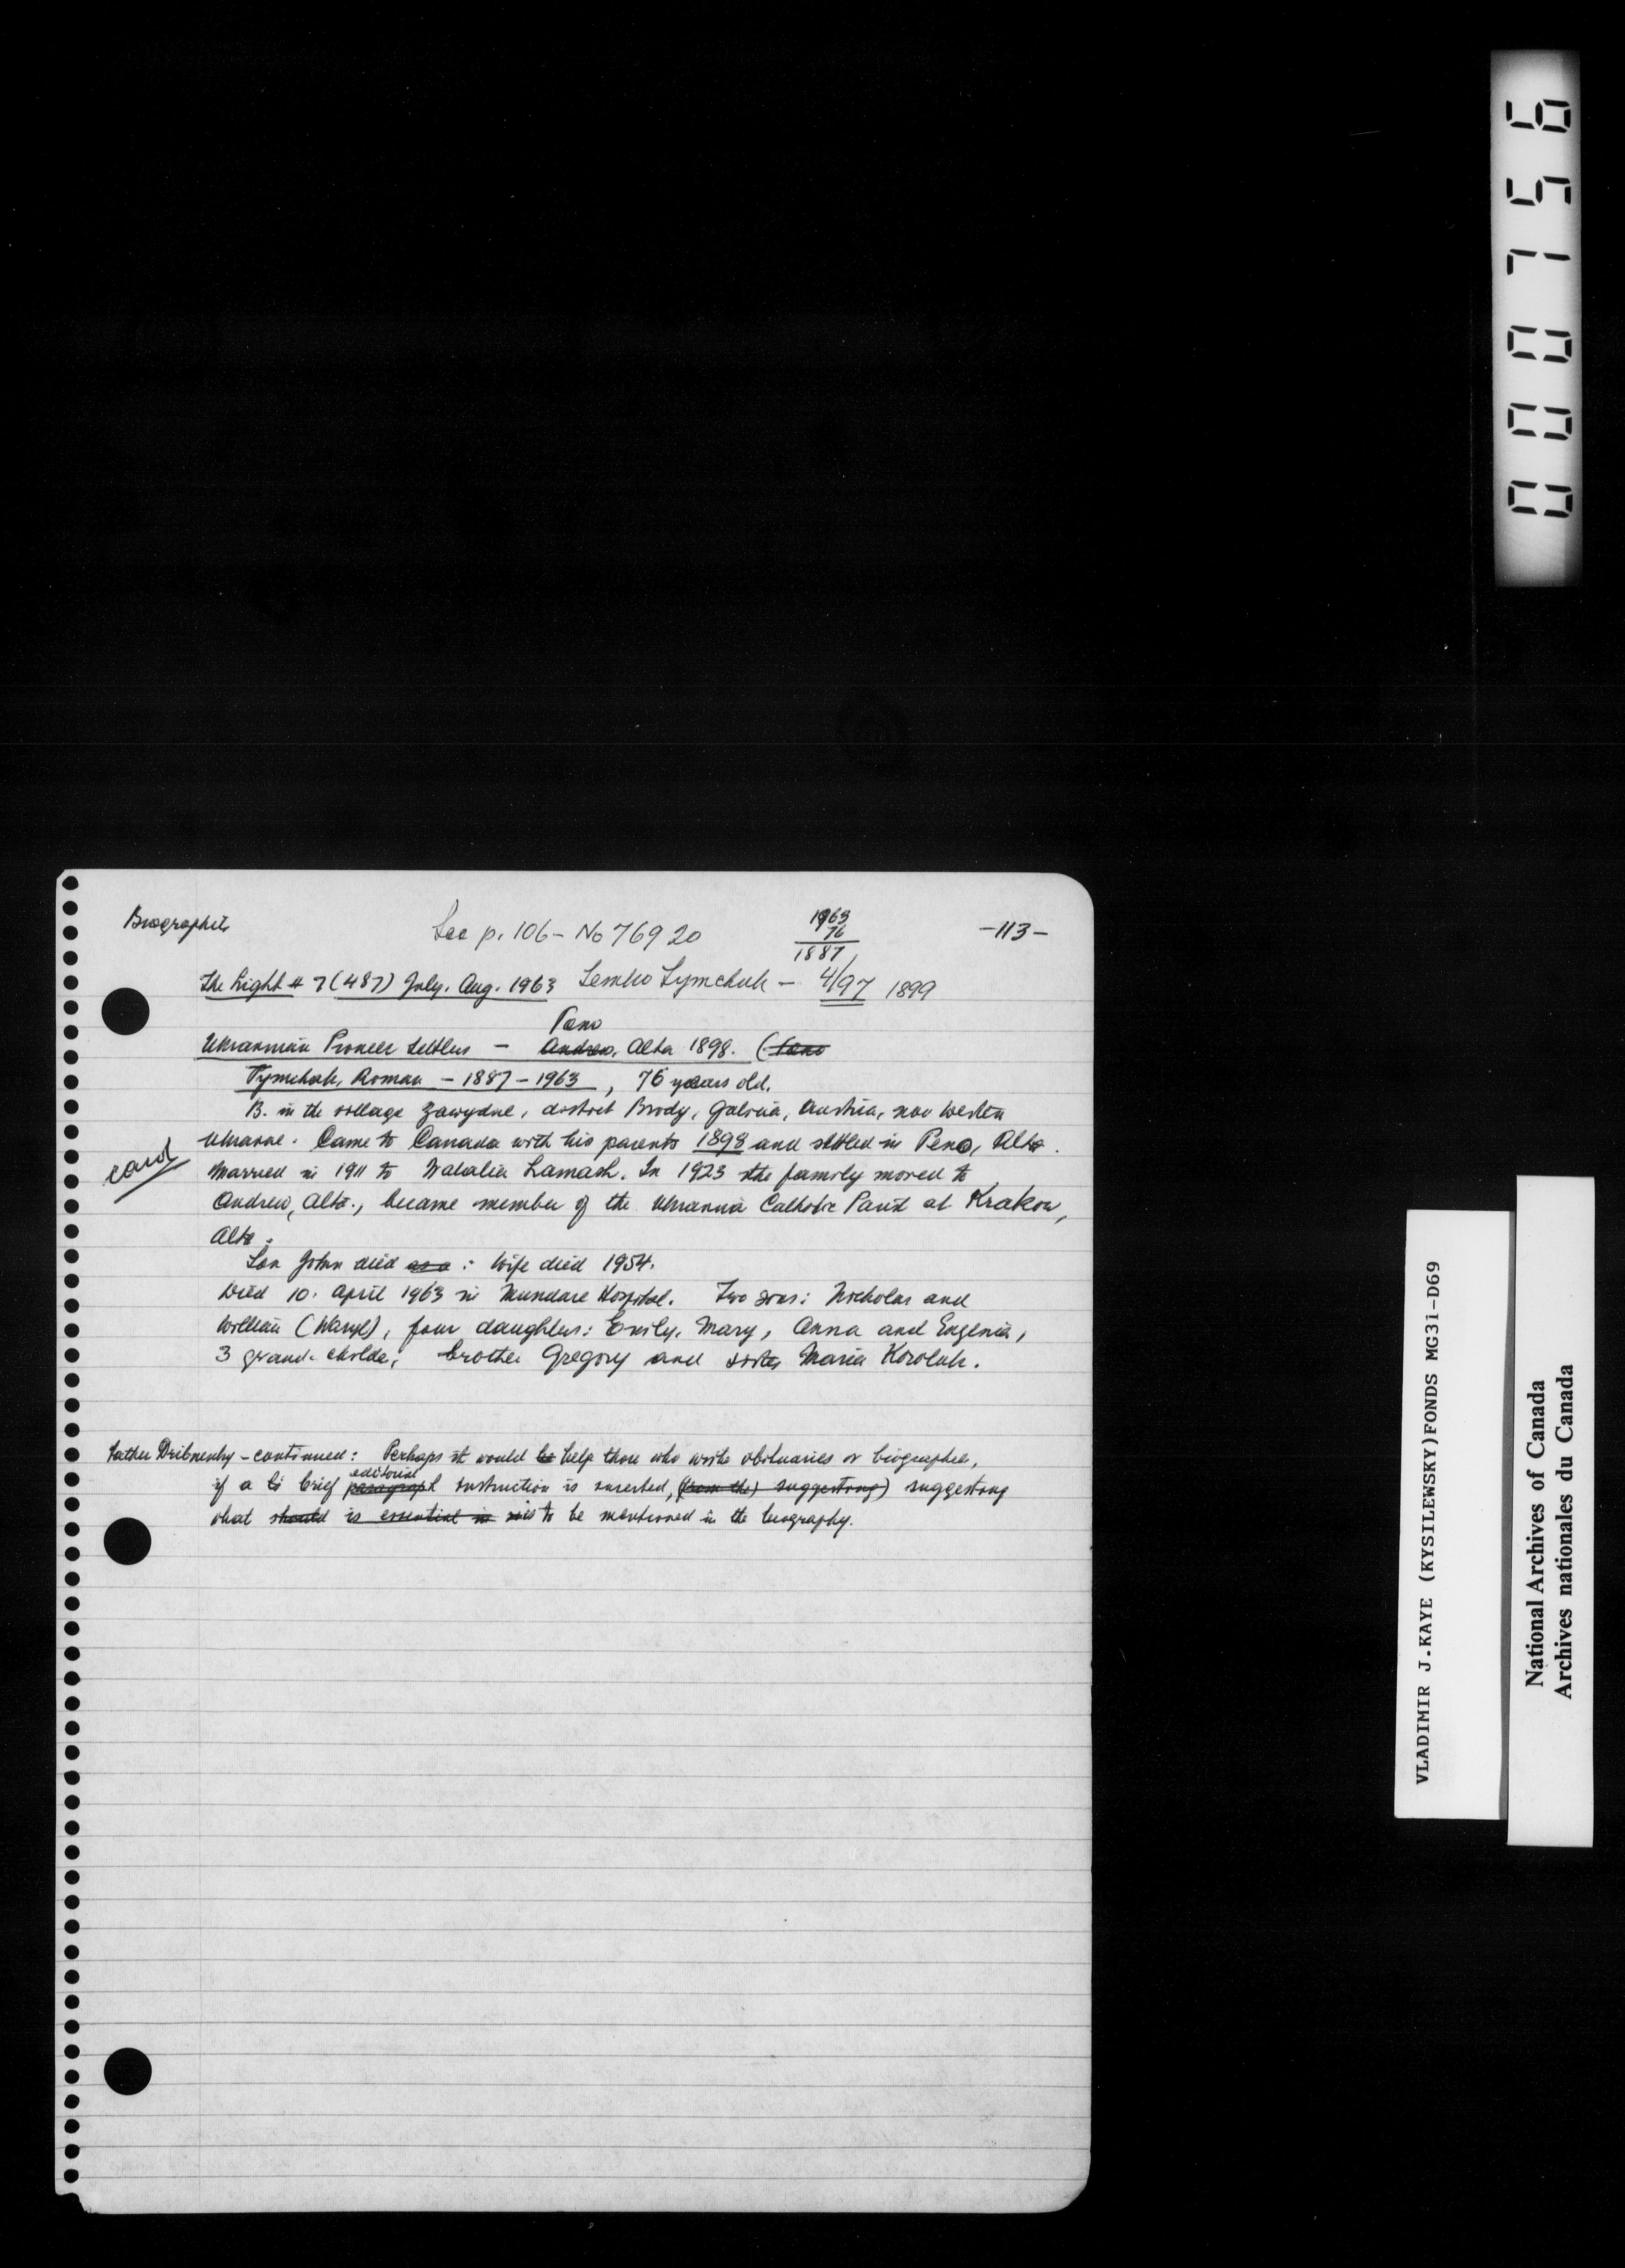 Biographies
See p. 106 - No 76920
1963
76
1887
-113-
The Light # 7 (487) July. Aug. 1963 Semko Tymchuk - 4/97 1899
Peno
Ukrainian Pioneer Settlers - Andrew, Alta 1898. (Peno
Tymchuk, Roman - 1887-1963, 76 years old.
B. in the village Zawydne, district Brody, Galicia, Austria, now Western
Ukraine. Came to Canada with his parents 1898 and settled in Peno, Alta.
card
Married in 1911 to Natalia Lamash. In 1923 the family moved to
Andrew, Alta., became member of the Ukrainia Catholic Parish at Krakow,
Alta.
Son John died as a : Wife died 1954.
Died 10. April 1963 in Mundare Hospital. Two sons: Nicholas and
William (Wasyl), four daughters: Emily, Mary, Anna and Eugenia,
3 grand-childr, brother Gregory and sister Maria Koroluk.
Father Dribnenky - continued: Perhaps it would be help those who write obituaries or biographies,
editorial
if a li brief paragraph instruction is inserted, (from the) suggesting) suggesting
what should is essential in is to be mentioned in the biography.
000756
VLADIMIR J.KAYE (KYSILEWSKY)FONDS MG31-D69
National Archives of Canada
Archives nationales du Canada